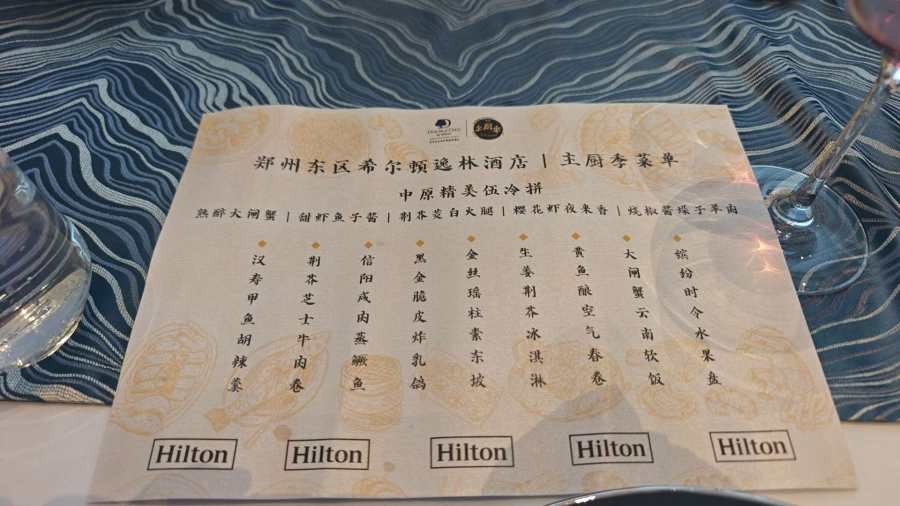 DOUBLETREE
郑州东区希尔顿逸林酒店 | 主厨季菜单
中原精美伍冷拼
熟醉大闸蟹 | 甜虾鱼子酱 | 荆芥茭白火腿 | 樱花虾夜来香 | 烧椒酱垛子羊肉
汉寿甲鱼胡辣羹
荆芥芝士牛肉卷
信阳咸肉蒸鳜鱼
黑金脆皮炸乳鸽
金丝瑶柱素东坡
生姜荆芥冰淇淋
黄鱼酿空气春卷
大闸蟹云南软饭
缤纷时令水果盘
Hilton
Hilton
Hilton
Hilton
Hilton